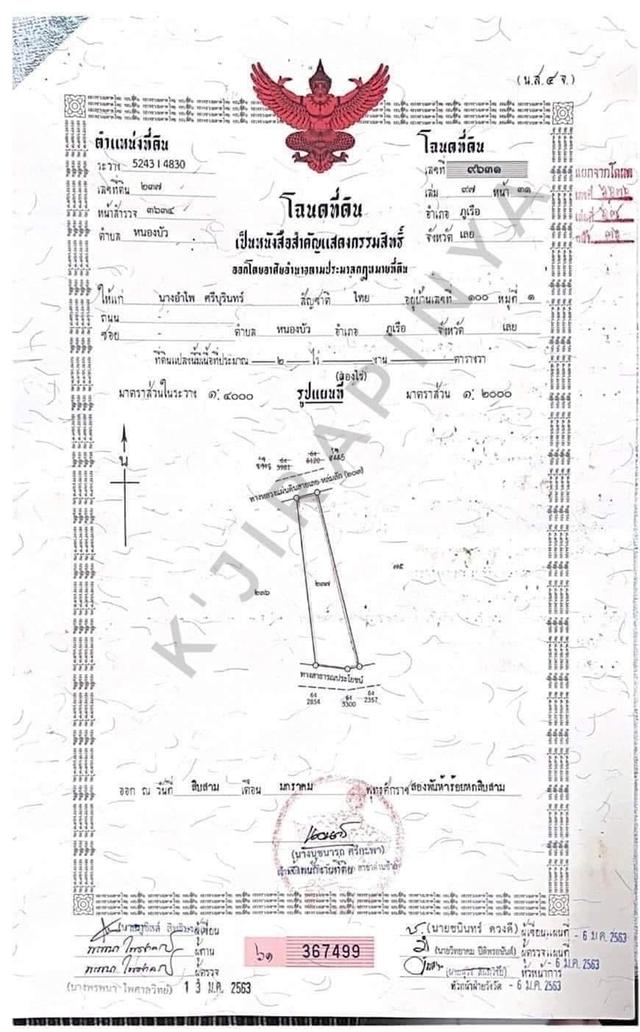 (น.ส.๔ จ.)
ตำแหน่งที่ดิน
ระวาง 5243 I 4830
เลขที่ดิน ๒๓๗
หน้าสำรวจ ๓๖๓๔
ตำบล หนองบัว
โฉนดที่ดิน
เลขที่ ๙๖๓๑
เล่ม ๙๗ หน้า ๓๑
อำเภอ ภูเรือ
จังหวัด เลย
แยกจากโฉนด
เลขที่
เล่มที่
หน้า
โฉนดที่ดิน
เป็นหนังสือสำคัญแสดงกรรมสิทธิ์
ออกโดยอาศัยอำนาจตามประมวลกฎหมายที่ดิน
ให้แก่ นางอำไพ ศรีบุรินทร์ สัญชาติ ไทย อยู่บ้านเลขที่ ๑๐๐ หมู่ที่ ๑
ถนน
ซอย - ตำบล หนองบัว อำเภอ ภูเรือ จังหวัด เลย
ที่ดินแปลงนี้มีเนื้อที่ประมาณ ๒ ไร่ งาน ตารางวา
(สองไร่)
มาตราส่วนในระวาง ๑: ๔๐๐๐ รูปแผนที่ มาตราส่วน ๑: ๒๐๐๐
น
64 3981 64 6120
ทางหลวงแผ่นดินสายเลย-หล่มสัก (๒๐๓)
๗๕
๒๓๖ ๒๓๗
ทางสาธารณประโยชน์
64 2854 64 3300 64 2357
K'JIRAPINYA
ออก ณ วันที่ สิบสาม เดือน มกราคม พุทธศักราช สองพันห้าร้อยหกสิบสาม
(นางนุชนารถ ศรีทะพา)
ผู้เขียน
ผู้ทาน
ผู้ตรวจ
(นางพรพนา ไพศาลวิทย์) 13 ม.ค. 2563
๖๑ 367499
(นายชนินทร์ ดวงดี) ผู้เขียนแผนที่ - 6 ม.ค. 2563
(นายวิทยาคม ปิติพรอนันต์) ผู้ตรวจแผนที่ - 6 ม.ค. 2563
หัวหน้าการ
หัวหน้าฝ่ายรังวัด - 6 ม.ค. 2563